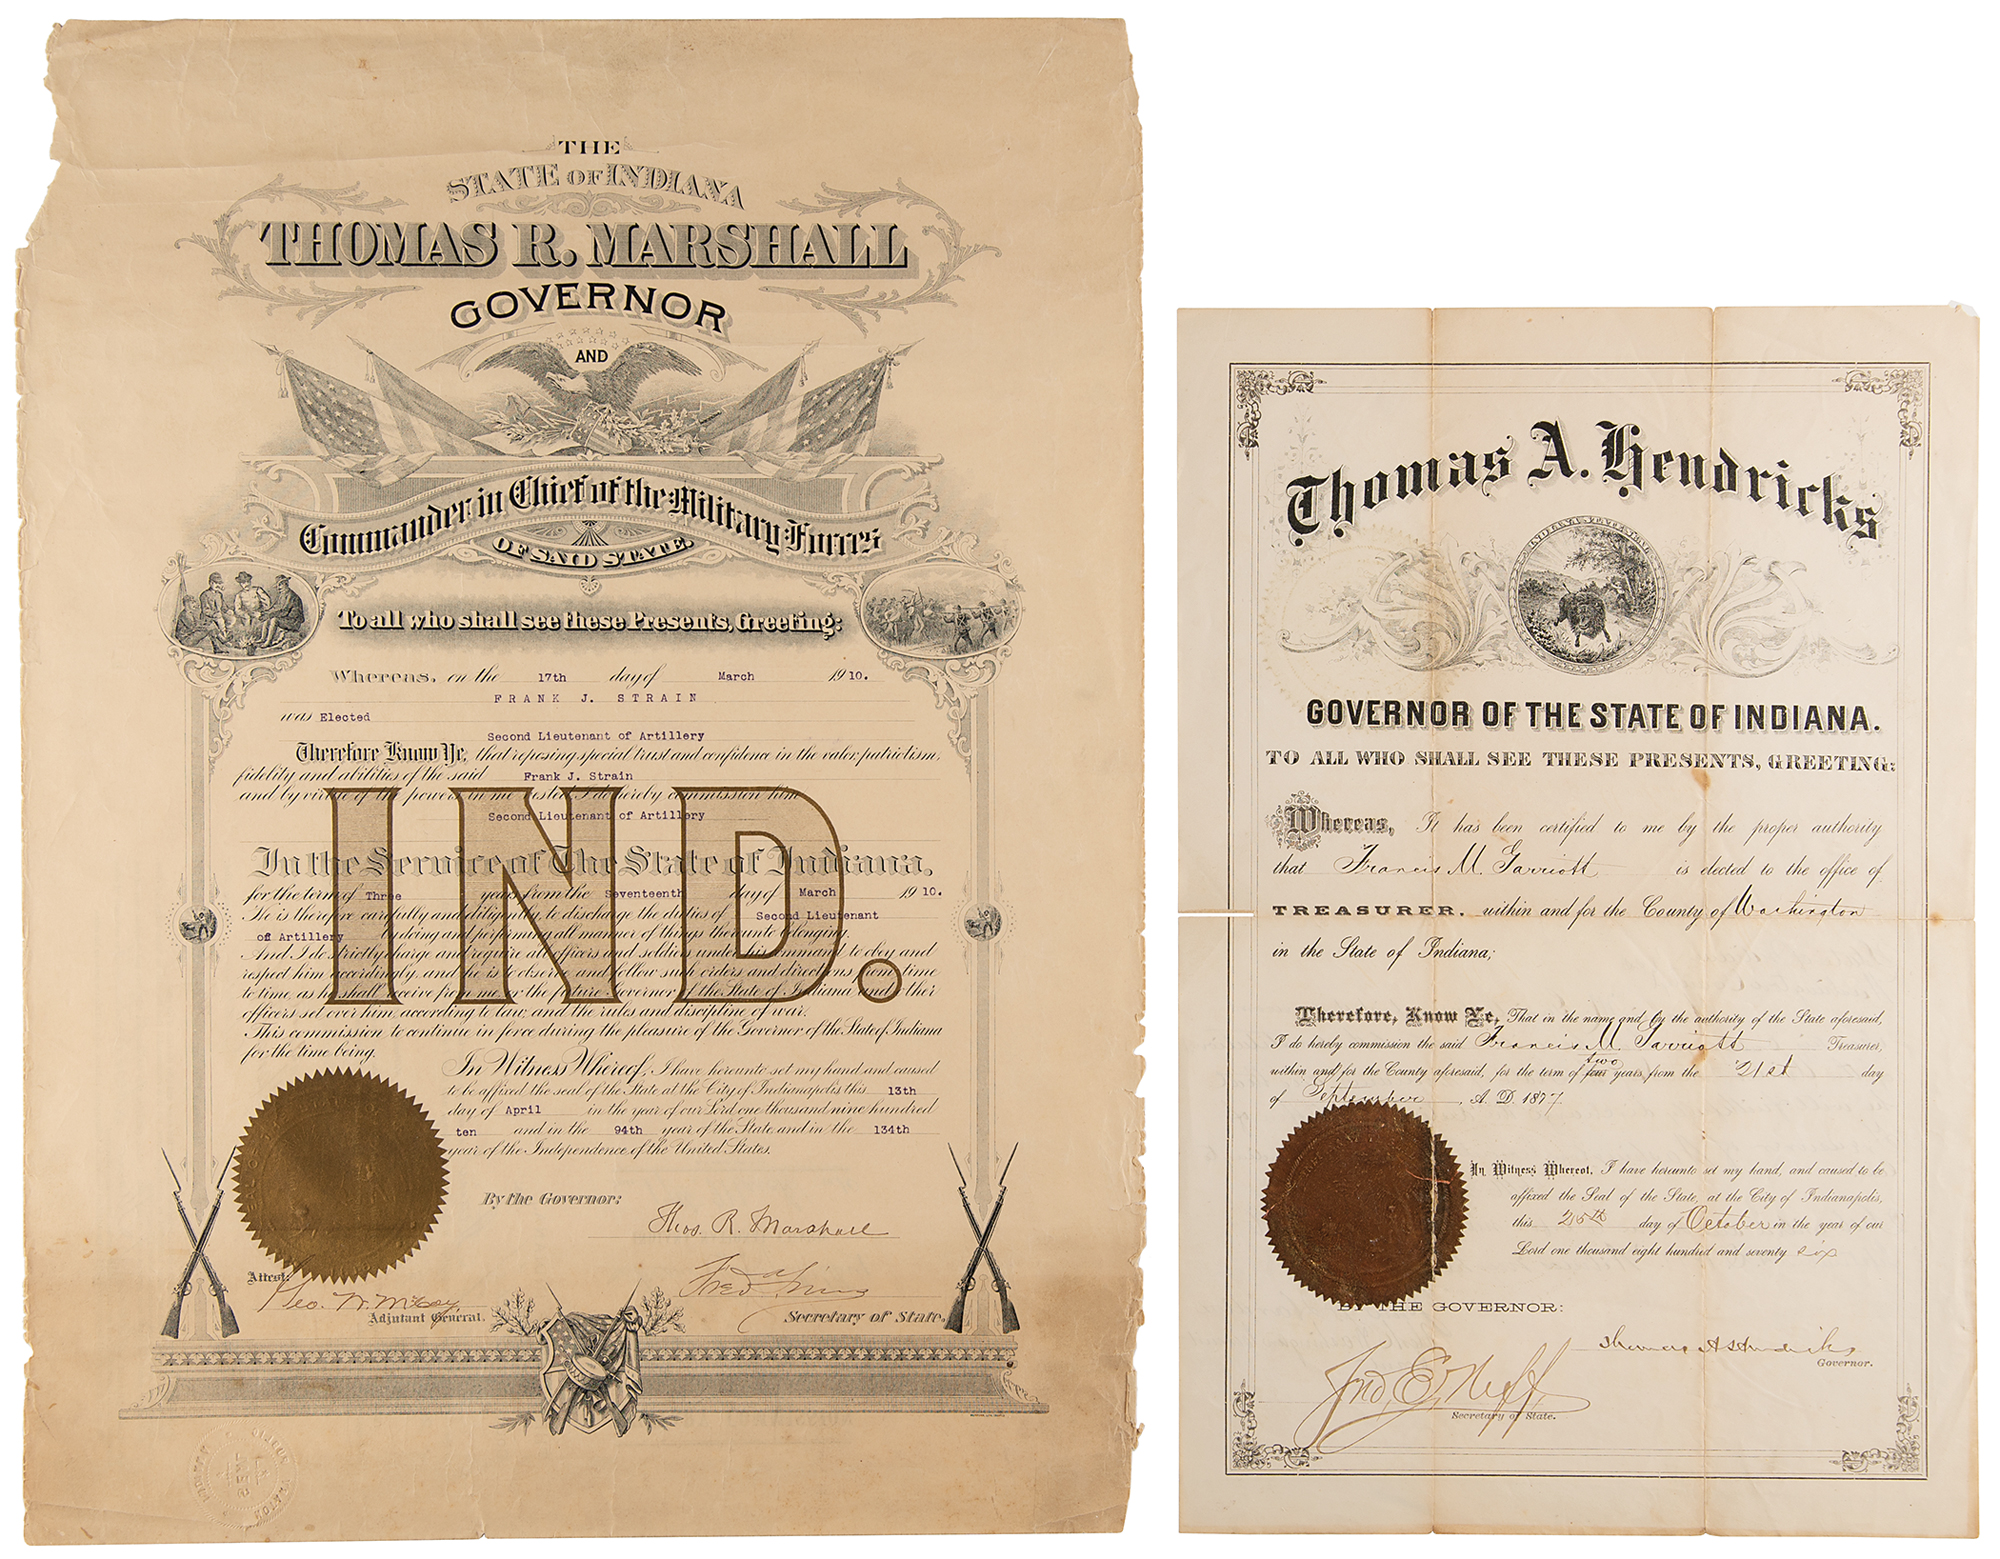 THE
STATE OF INDIANA
THOMAS R. MARSHALL
GOVERNOR
AND
Commander in Chief of the Military Forces
OF SAID STATE.
To all who shall see these Presents, Greeting:
Whereas, on the 17th day of March 1910.
FRANK J. STRAIN
was Elected
Second Lieutenant of Artillery
Therefore Know Ye, that reposing special trust and confidence in the valor, patriotism,
fidelity and abilities of the said Frank J. Strain
and by virtue of the powers in me vested, I do hereby commission him
Second Lieutenant of Artillery
IND.
In the Service of The State of Indiana,
for the term of Three years from the Seventeenth day of March 1910.
He is therefore carefully and diligently to discharge the duties of Second Lieutenant
of Artillery by doing and performing all manner of things thereunto belonging.
And I do strictly charge and require all officers and soldiers under his command to obey and
respect him accordingly, and he is to observe and follow such orders and directions, from time
to time, as he shall receive from me or the future Governor of the State of Indiana and other
officers set over him, according to law, and the rules and discipline of war.
This commission to continue in force during the pleasure of the Governor of the State of Indiana
for the time being.
In Witness Whereof, I have hereunto set my hand and caused
to be affixed the seal of the State at the City of Indianapolis this 13th
day of April in the year of our Lord one thousand nine hundred
ten and in the 94th year of the State, and in the 134th
year of the Independence of the United States.
By the Governor:
Thos. R. Marshall
Attest:
Geo. W. McCoy
Adjutant General.
Fred A Sims
Secretary of State.
Thomas A. Hendricks
GOVERNOR OF THE STATE OF INDIANA.
TO ALL WHO SHALL SEE THESE PRESENTS, GREETING:
Whereas, It has been certified to me by the proper authority
that Francis M. Garriott is elected to the office of
TREASURER, within and for the County of Washington
in the State of Indiana;
Therefore, Know Ye, That in the name and by the authority of the State aforesaid,
I do hereby commission the said Francis M. Garriott Treasurer,
within and for the County aforesaid, for the term of four two years from the 21st day
of September, A. D. 1877.
In Witness Whereof, I have hereunto set my hand, and caused to be
affixed the Seal of the State, at the City of Indianapolis,
this 25th day of October in the year of our
Lord one thousand eight hundred and seventy six
BY THE GOVERNOR:
Thomas A Hendricks
Governor.
Jno. E. Neff
Secretary of State.